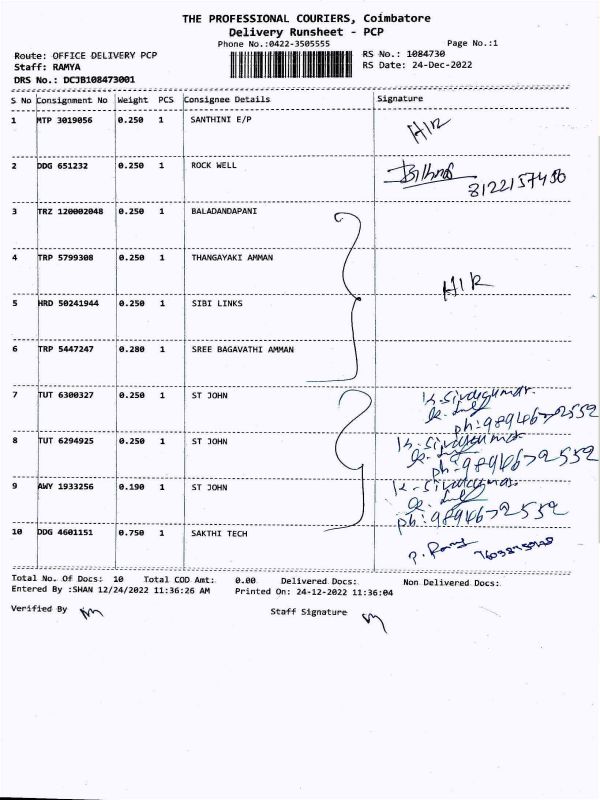 THE PROFESSIONAL COURIERS, Coimbatore
Delivery Runsheet - PCP
Phone No.:0422-3505555 Page No.:1
Route: OFFICE DELIVERY PCP RS No.: 1084730
Staff: RAMYA RS Date: 24-Dec-2022
DRS No.: DCJB108473001
S No Consignment No Weight PCS Consignee Details Signature
1 MTP 3019056 0.250 1 SANTHINI E/P H/R
2 DDG 651232 0.250 1 ROCK WELL
8122157456
3 TRZ 120002048 0.250 1 BALADANDAPANI
4 TRP 5799308 0.250 1 THANGAYAKI AMMAN
H/R
5 HRD 50241944 0.250 1 SIBI LINKS
6 TRP 5447247 0.280 1 SREE BAGAVATHI AMMAN
7 TUT 6300327 0.250 1 ST JOHN K. Sivakumar.
ph: 9894672552
8 TUT 6294925 0.250 1 ST JOHN K. Sivakumar
ph: 9894672552
9 AWY 1933256 0.190 1 ST JOHN K. Sivakumar.
ph: 9894672552
10 DDG 4601151 0.750 1 SAKTHI TECH
Total No. Of Docs: 10 Total COD Amt: 0.00 Delivered Docs: Non Delivered Docs:
Entered By :SHAN 12/24/2022 11:36:26 AM Printed On: 24-12-2022 11:36:04
Verified By Staff Signature